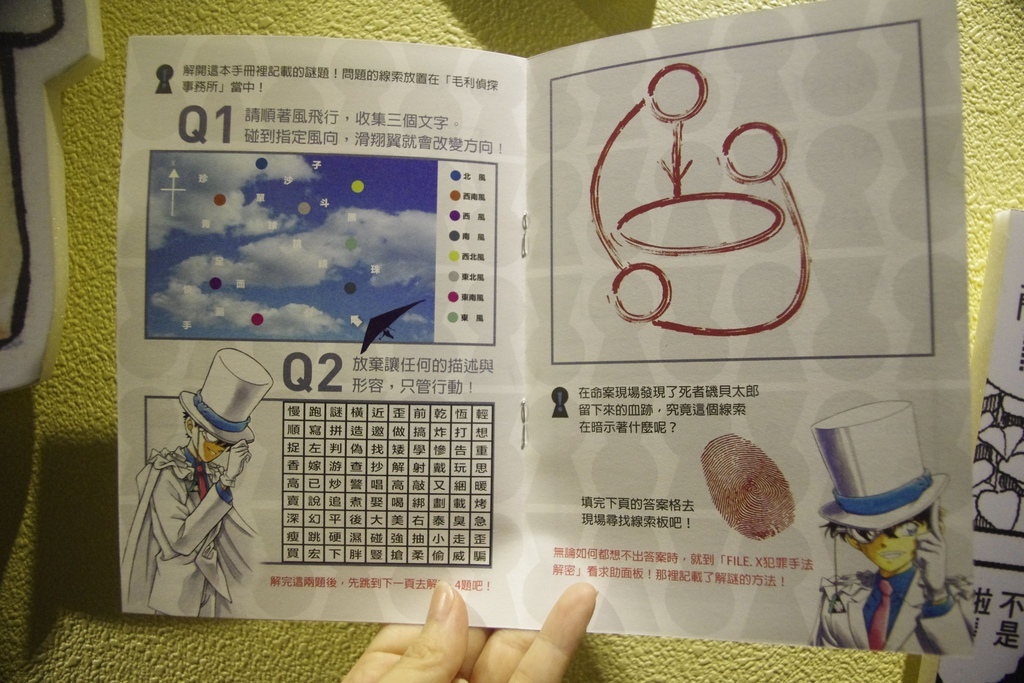 解開這本手冊裡記載的謎題！問題的線索放置在「毛利偵探
事務所」當中！
Q1 請順著風飛行，收集三個文字。
碰到指定風向，滑翔翼就會改變方向！
子
珍
沙
單
斗
珠
手
北 風
西南風
西 風
南 風
西北風
東北風
東南風
東 風
Q2 放棄讓任何的描述與
形容，只管行動！
慢 跑 謎 橫 近 歪 前 乾 恆 輕
順 寫 拼 造 邀 做 搞 炸 打 想
捉 左 判 偽 找 矮 學 慘 告 重
香 嫁 游 查 抄 解 射 戴 玩 思
高 已 炒 警 唱 高 敲 又 綑 暖
賣 說 追 煮 娶 喝 綁 劃 載 烤
深 幻 平 後 大 美 右 泰 臭 急
瘦 跳 硬 濕 碰 強 抽 小 走 歪
買 宏 下 胖 豎 搶 柔 偷 威 騙
解完這兩題後，先跳到下一頁去解 4題吧！
在命案現場發現了死者磯貝太郎
留下來的血跡，究竟這個線索
在暗示著什麼呢？
填完下頁的答案格去
現場尋找線索板吧！
無論如何都想不出答案時，就到「FILE. X犯罪手法
解密」看求助面板！那裡記載了解謎的方法！
不是
啦